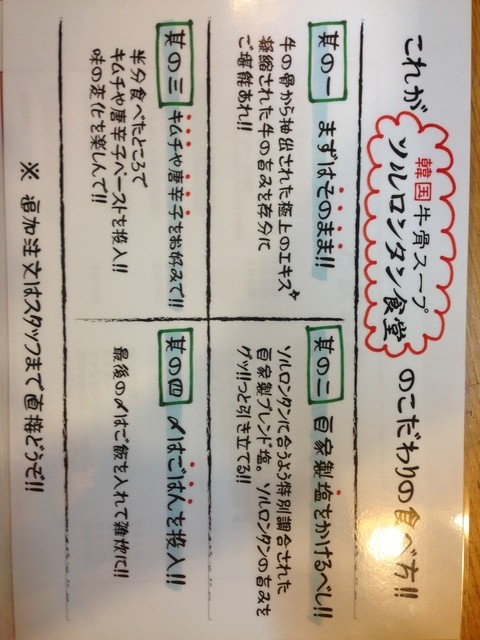 これが
韓国牛骨スープ
ソルロンタン食堂
のこだわりの食べ方!!
其の一 まずはそのまま!!
牛の骨から抽出された極上のエキス
凝縮された牛の旨みを存分に
ご堪能あれ!!
其の二 自家製塩をかけるべし!!
ソルロンタンに合うよう特別調合された
自家製ブレンド塩。ソルロンタンの旨みを
グッ!!っと引き立てる!!
其の三 キムチや唐辛子をお好みで!!
半分食べたところで
キムチや唐辛子ペーストを投入!!
味の変化を楽しんで!!
其の四 〆はごはんを投入!!
最後の〆はご飯を入れて雑炊に!!
※ 追加注文はスタッフまで直接どうぞ!!